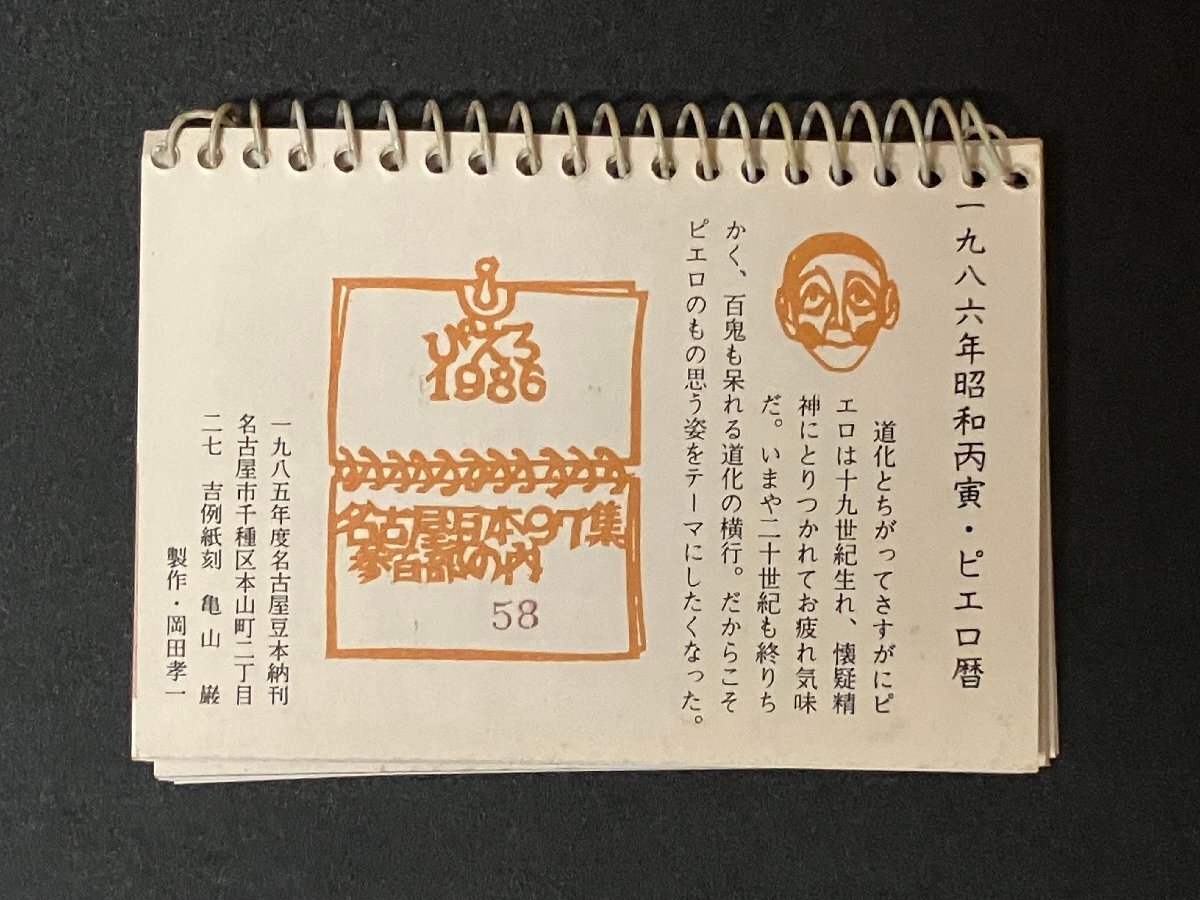 一九八六年昭和丙寅・ピエロ暦
道化とちがってさすがにピ
エロは十九世紀生れ、懐疑精
神にとりつかれてお疲れ気味
だ。いまや二十世紀も終りち
かく、百鬼も呆れる道化の横行。だからこそ
ピエロのもの思う姿をテーマにしたくなった。
ぴえろ
1986
名古屋豆本97集
参百部の内
58
一九八五年度名古屋豆本納刊
名古屋市千種区本山町二丁目
二七 吉例紙刻 亀山 巌
製作・岡田孝一